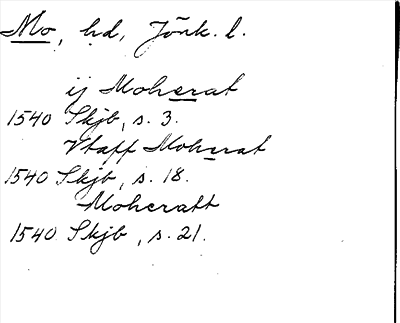 Mo, hd, Jönk. l.
ij Moherat
1540 Skjb, s. 3.
Vtaff Moherat
1540 Skjb, s. 18.
Moheratt
1540 Skjb, s. 21.